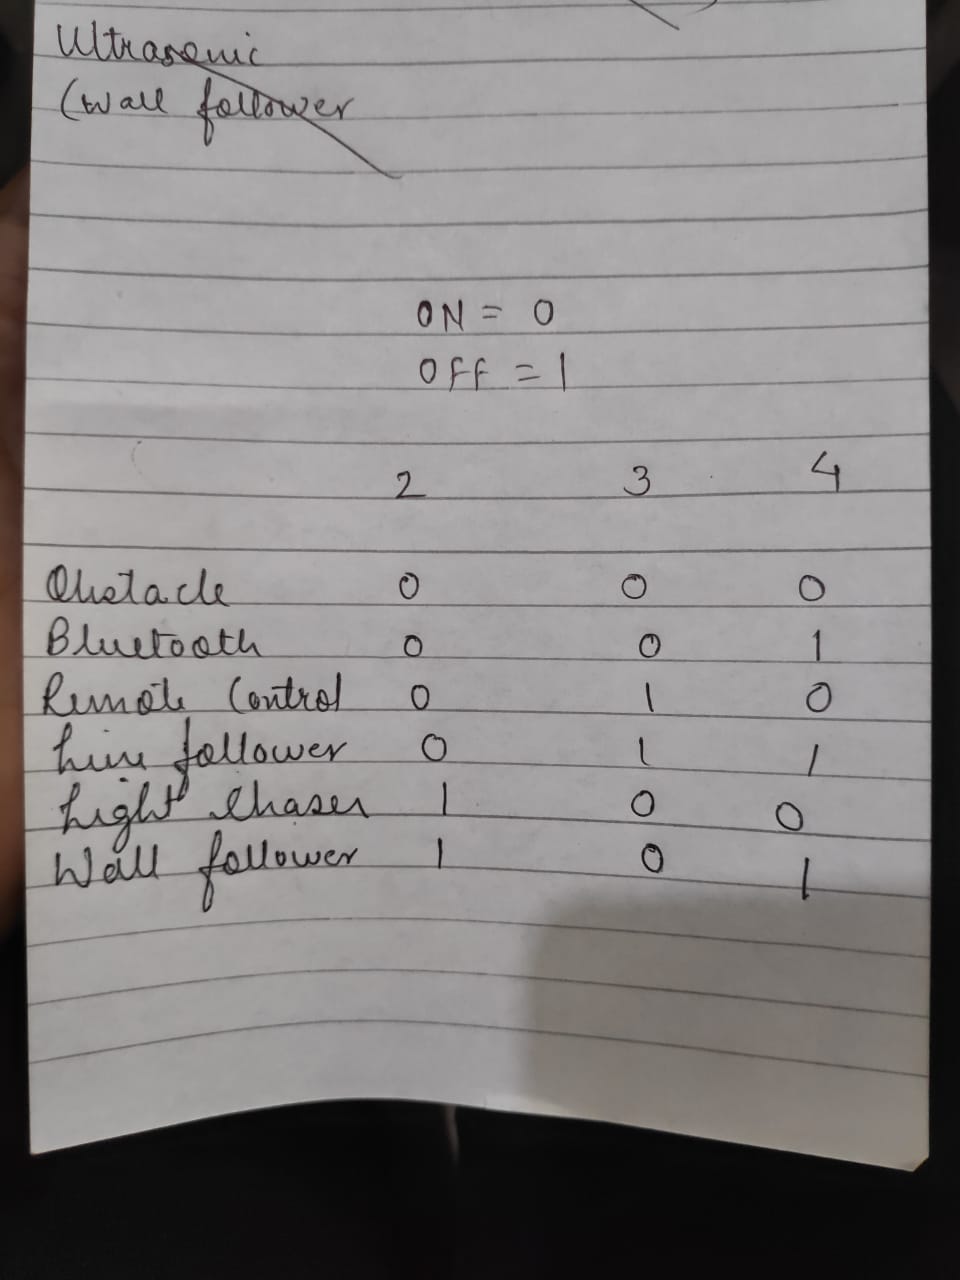 Ultrasonic
(Wall follower
ON = 0
OFF = 1
2 3 4
Obstacle 0 0 0
Bluetooth 0 0 1
Remote Control 0 1 0
Line follower 0 1 1
Light Chaser 1 0 0
Wall follower 1 0 1